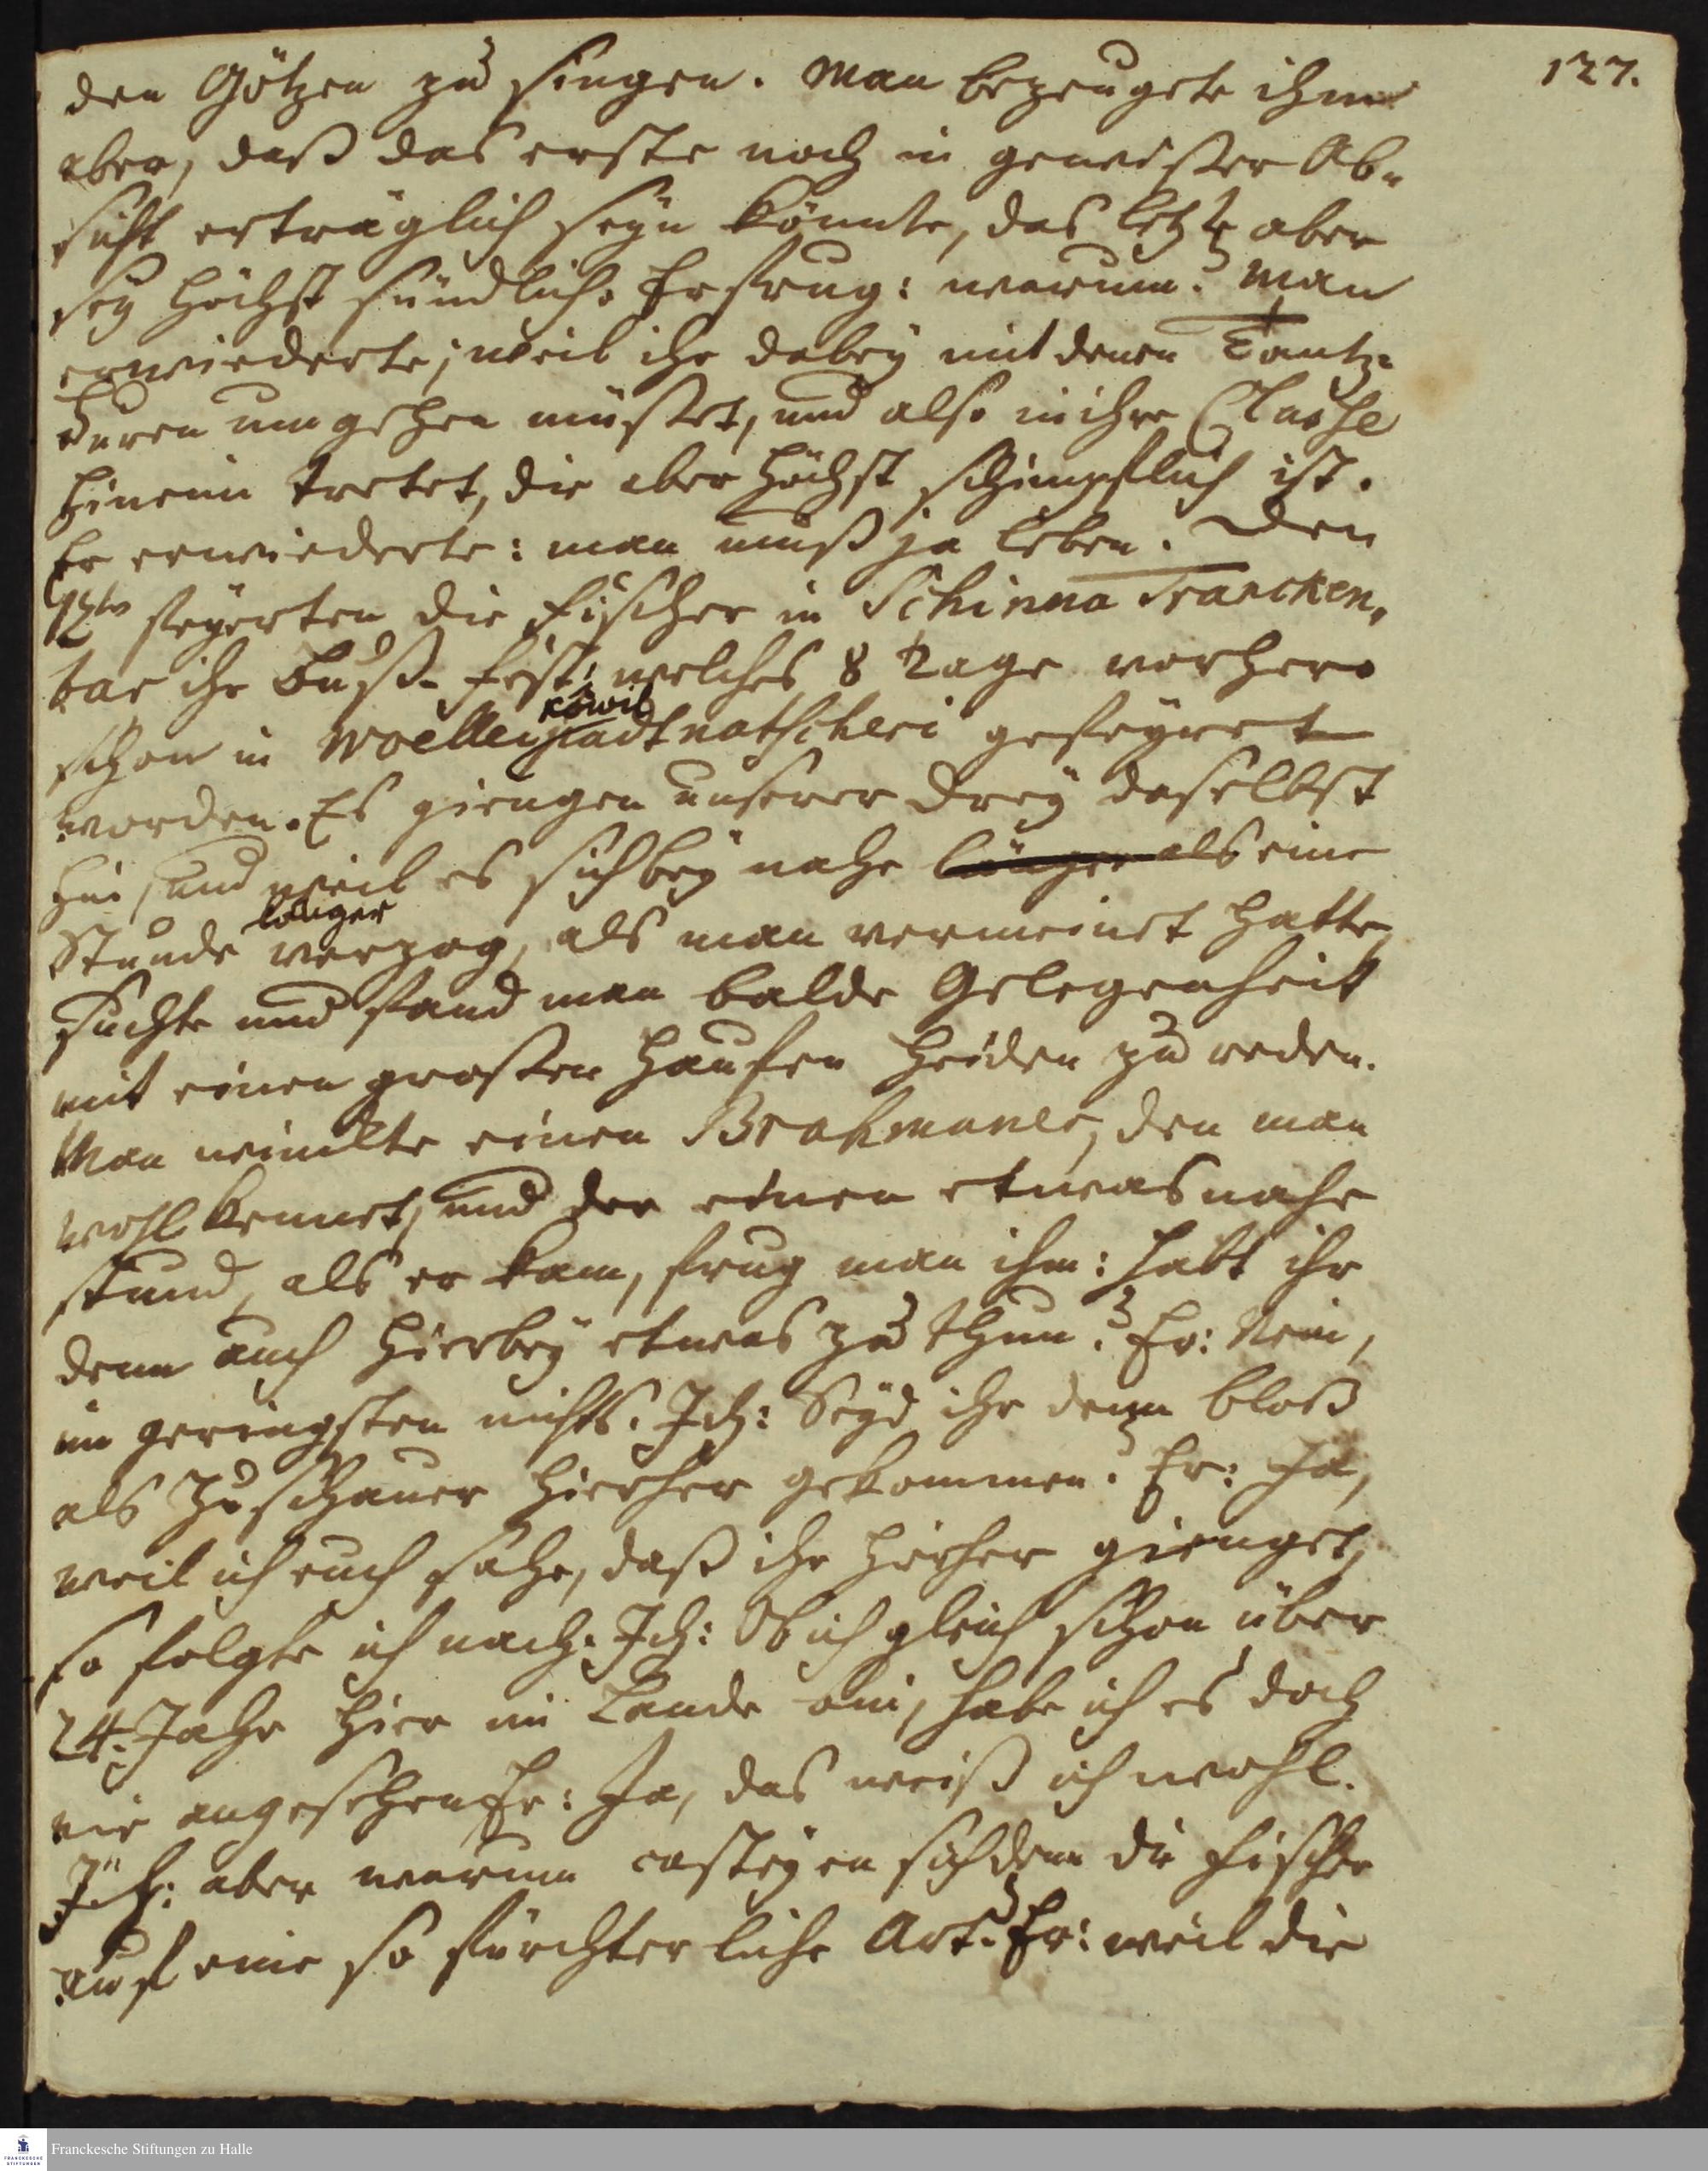 127.
den Götzen zu singen. Man bezeugete ihm
aber, daß das erste noch in gewisser Ab-
sicht erträglich seyn könnte, das letzte aber
sey höchst sündlich. Er frug: warum? Man
erwiederte; weil ihr dabey mit denen Tantz-
Huren umgehen müsset, und also in ihre Classe
hinein tretet, die aber höchst schimpflich ist.
Er erwiederte: man muß ja leben. Den
12ten feyerten die Fischer in Schinna Trancken-
bar ihr Buß-Fest, welches 8 Tage vorhero
schon in Woelleijaadtnatscheri gefeyret
köwil
worden. Es giengen unserer drey daselbst
hin, und weil es sich bey nahe länger als eine
Stunde länger verzog, als man vermeinet hatte,
suchte und fand man balde Gelegenheit
mit einen grossen Hauffen Heiden zu reden.
Man winckte einen Brahmaner, den man
wohl kennet, und der einen etwas nahe
stund, als er kam, frug man ihm: habt ihr
denn auch hierbey etwas zu thun? Er: Nein,
im geringsten nichts. Ich: Seyd ihr denn bloß
als Zuschauer hierher gekommen? Er: Ja,
weil ich euch sahe, daß ihr hieher gienget,
so folgte ich nach. Ich: Ob ich gleich schon über
24. Jahr hier im Lande bin, habe ich es doch
nie angesehen Er: Ja, das weiß ich wohl.
Ich: aber warum casteyen sich denn die Fischer
auf eine so fürchterliche Art? Er: weil die
Franckesche Stiftungen zu Halle
FRANCKESCHE STIFTUNGEN